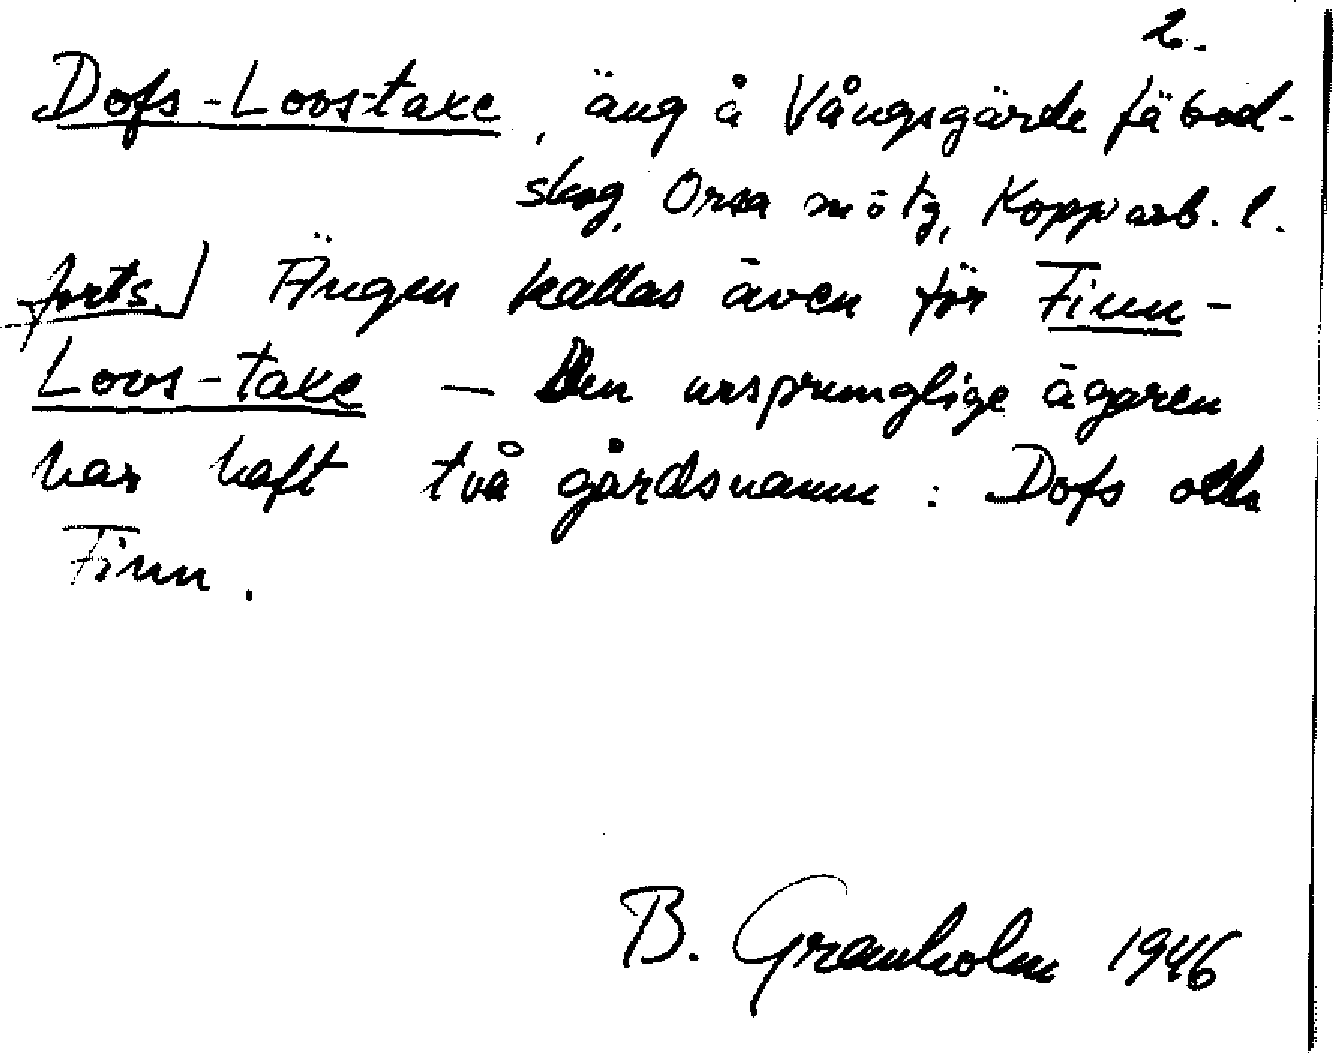 2.
Dofs-Loos-take, äng å Vångsgärde fäbod-
skog, Orsa sn o tg, Kopparb. l.
forts.) Ängen kallas även för Finn-
Loos-take — Den ursprunglige ägaren
har haft två gårdsnamn: Dofs och
Finn.
B. Granholm 1946